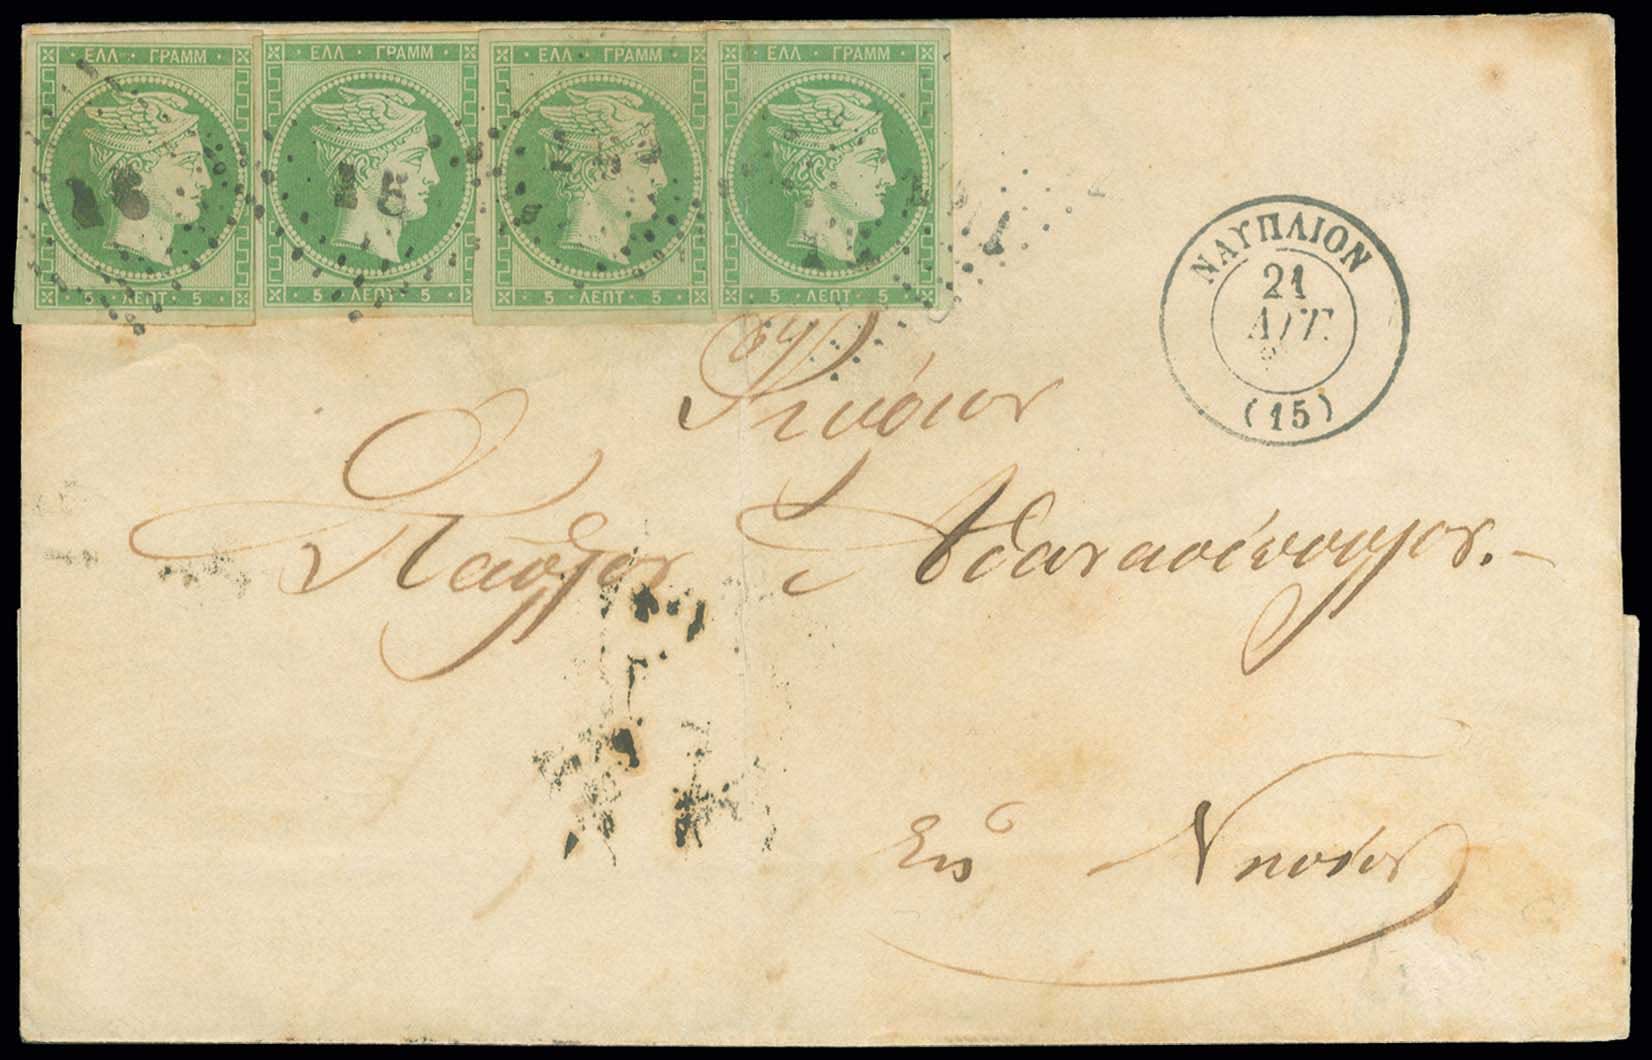 ΕΛΛ ΓΡΑΜΜ ΕΛΛ ΓΡΑΜΜ ΕΛΛ ΓΡΑΜΜ ΕΛΛ ΓΡΑΜΜ
15 15
5 ΛΕΠΤ 5 5 ΛΕΠΤ 5 5 ΛΕΠΤ 5 5 ΛΕΠΤ 5
ΝΑΥΠΛΙΟΝ
21
ΑΥΓ.
(15)
Κύριον
Παῦλον Αθανασόπουλον.-
Εις